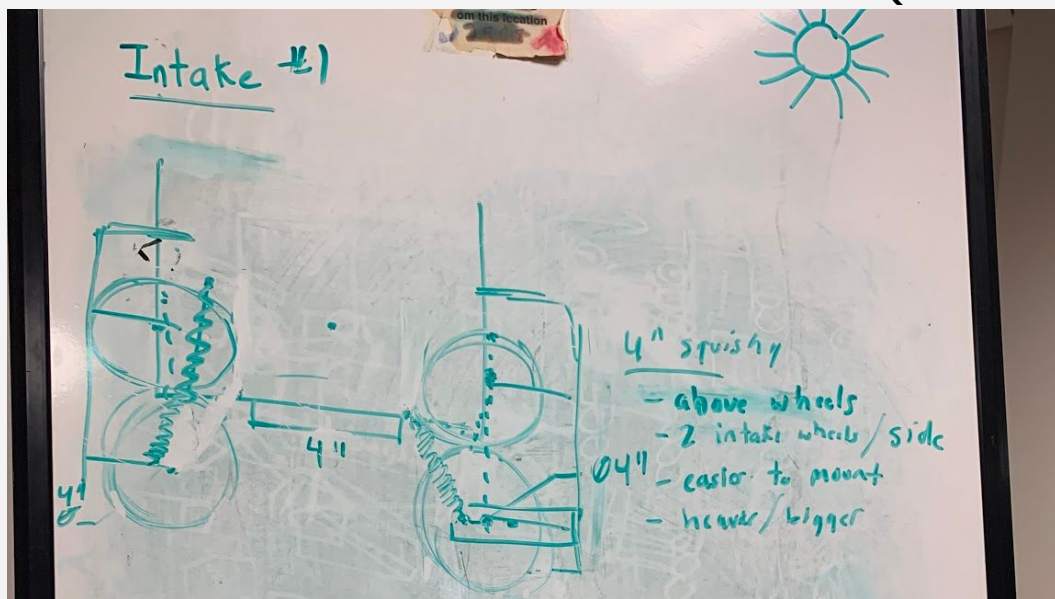 om this location
Intake #1
4" squishy
- above wheels
- 2 intake wheels/side
- easier to mount
- heaver/bigger
4"
Ø4"
4"